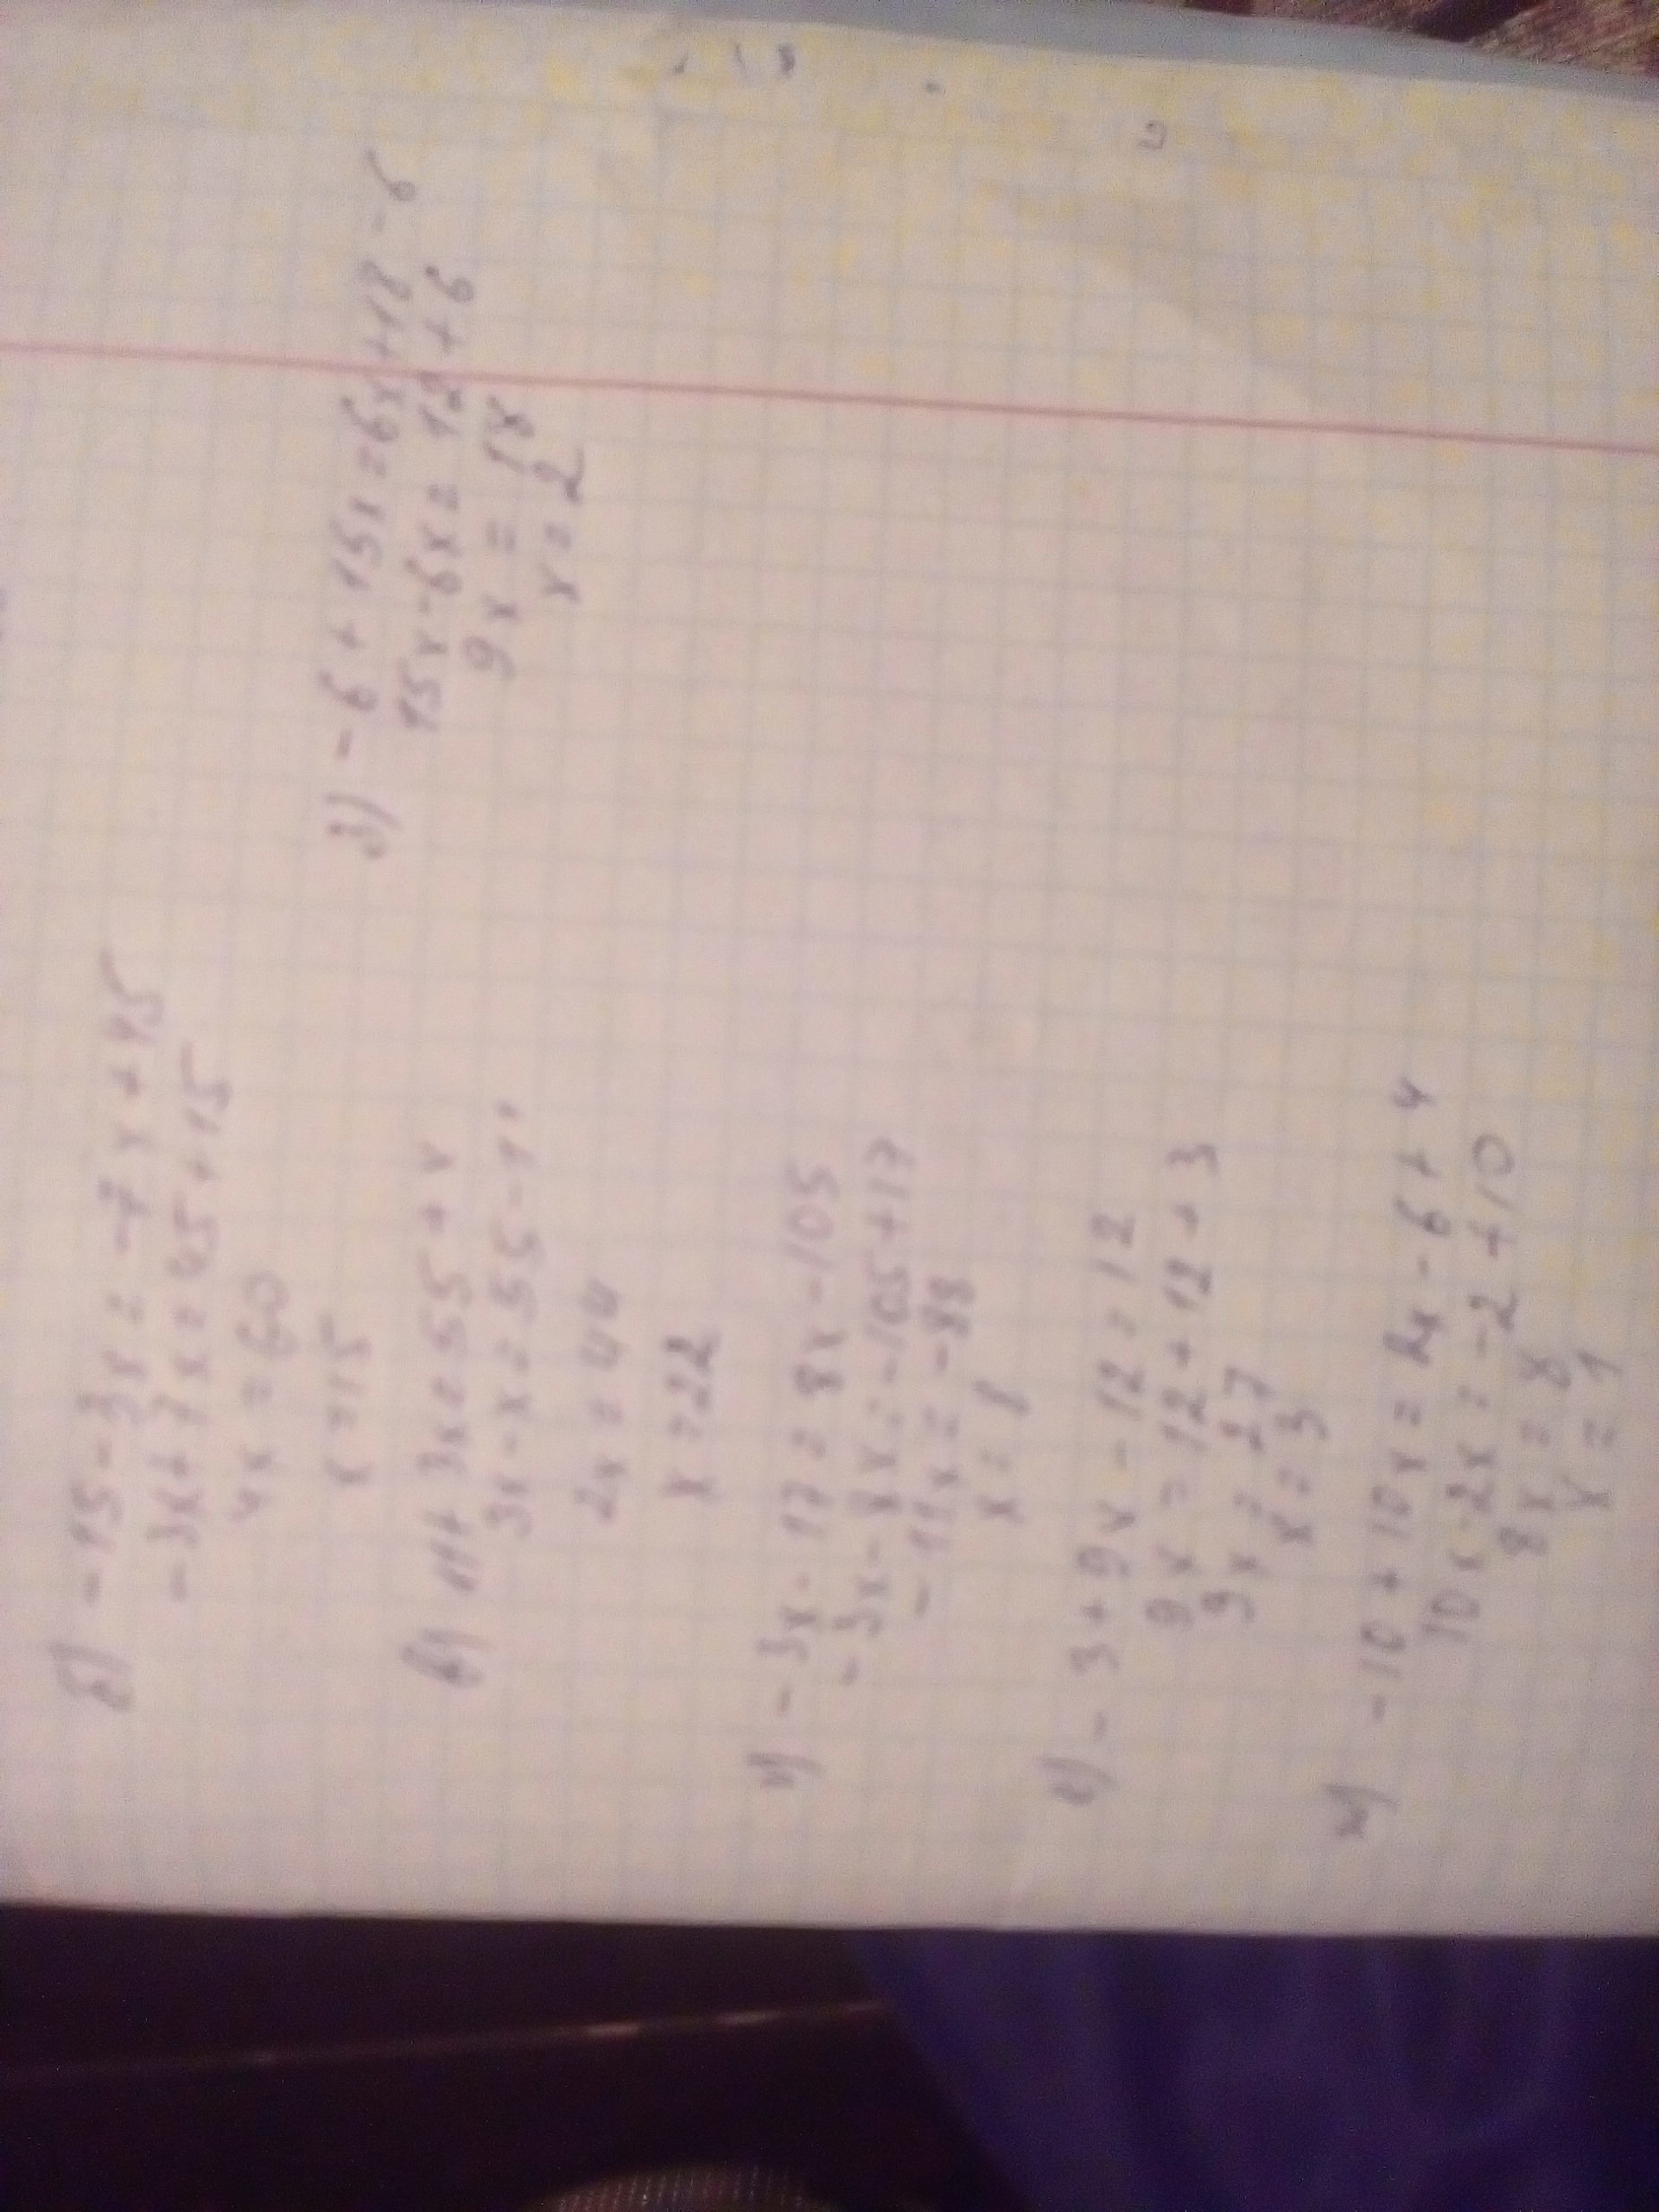 б) -15-3x = -7x+45
-3x+7x=45+15
4x=60
x=15
в) 11+3x=55+x
3x-x=55-11
2x=44
x=22
г) -3x-17=8x-105
-3x-8x=-105+17
-11x=-88
x=8
е) -3+9x-12=12
9x=12+12+3
9x=27
x=3
ж) -10+10x=2x-6+4
10x-2x=-2+10
8x=8
x=1
з) -6+15x=6x+18-6
15x-6x=12+6
9x=18
x=2